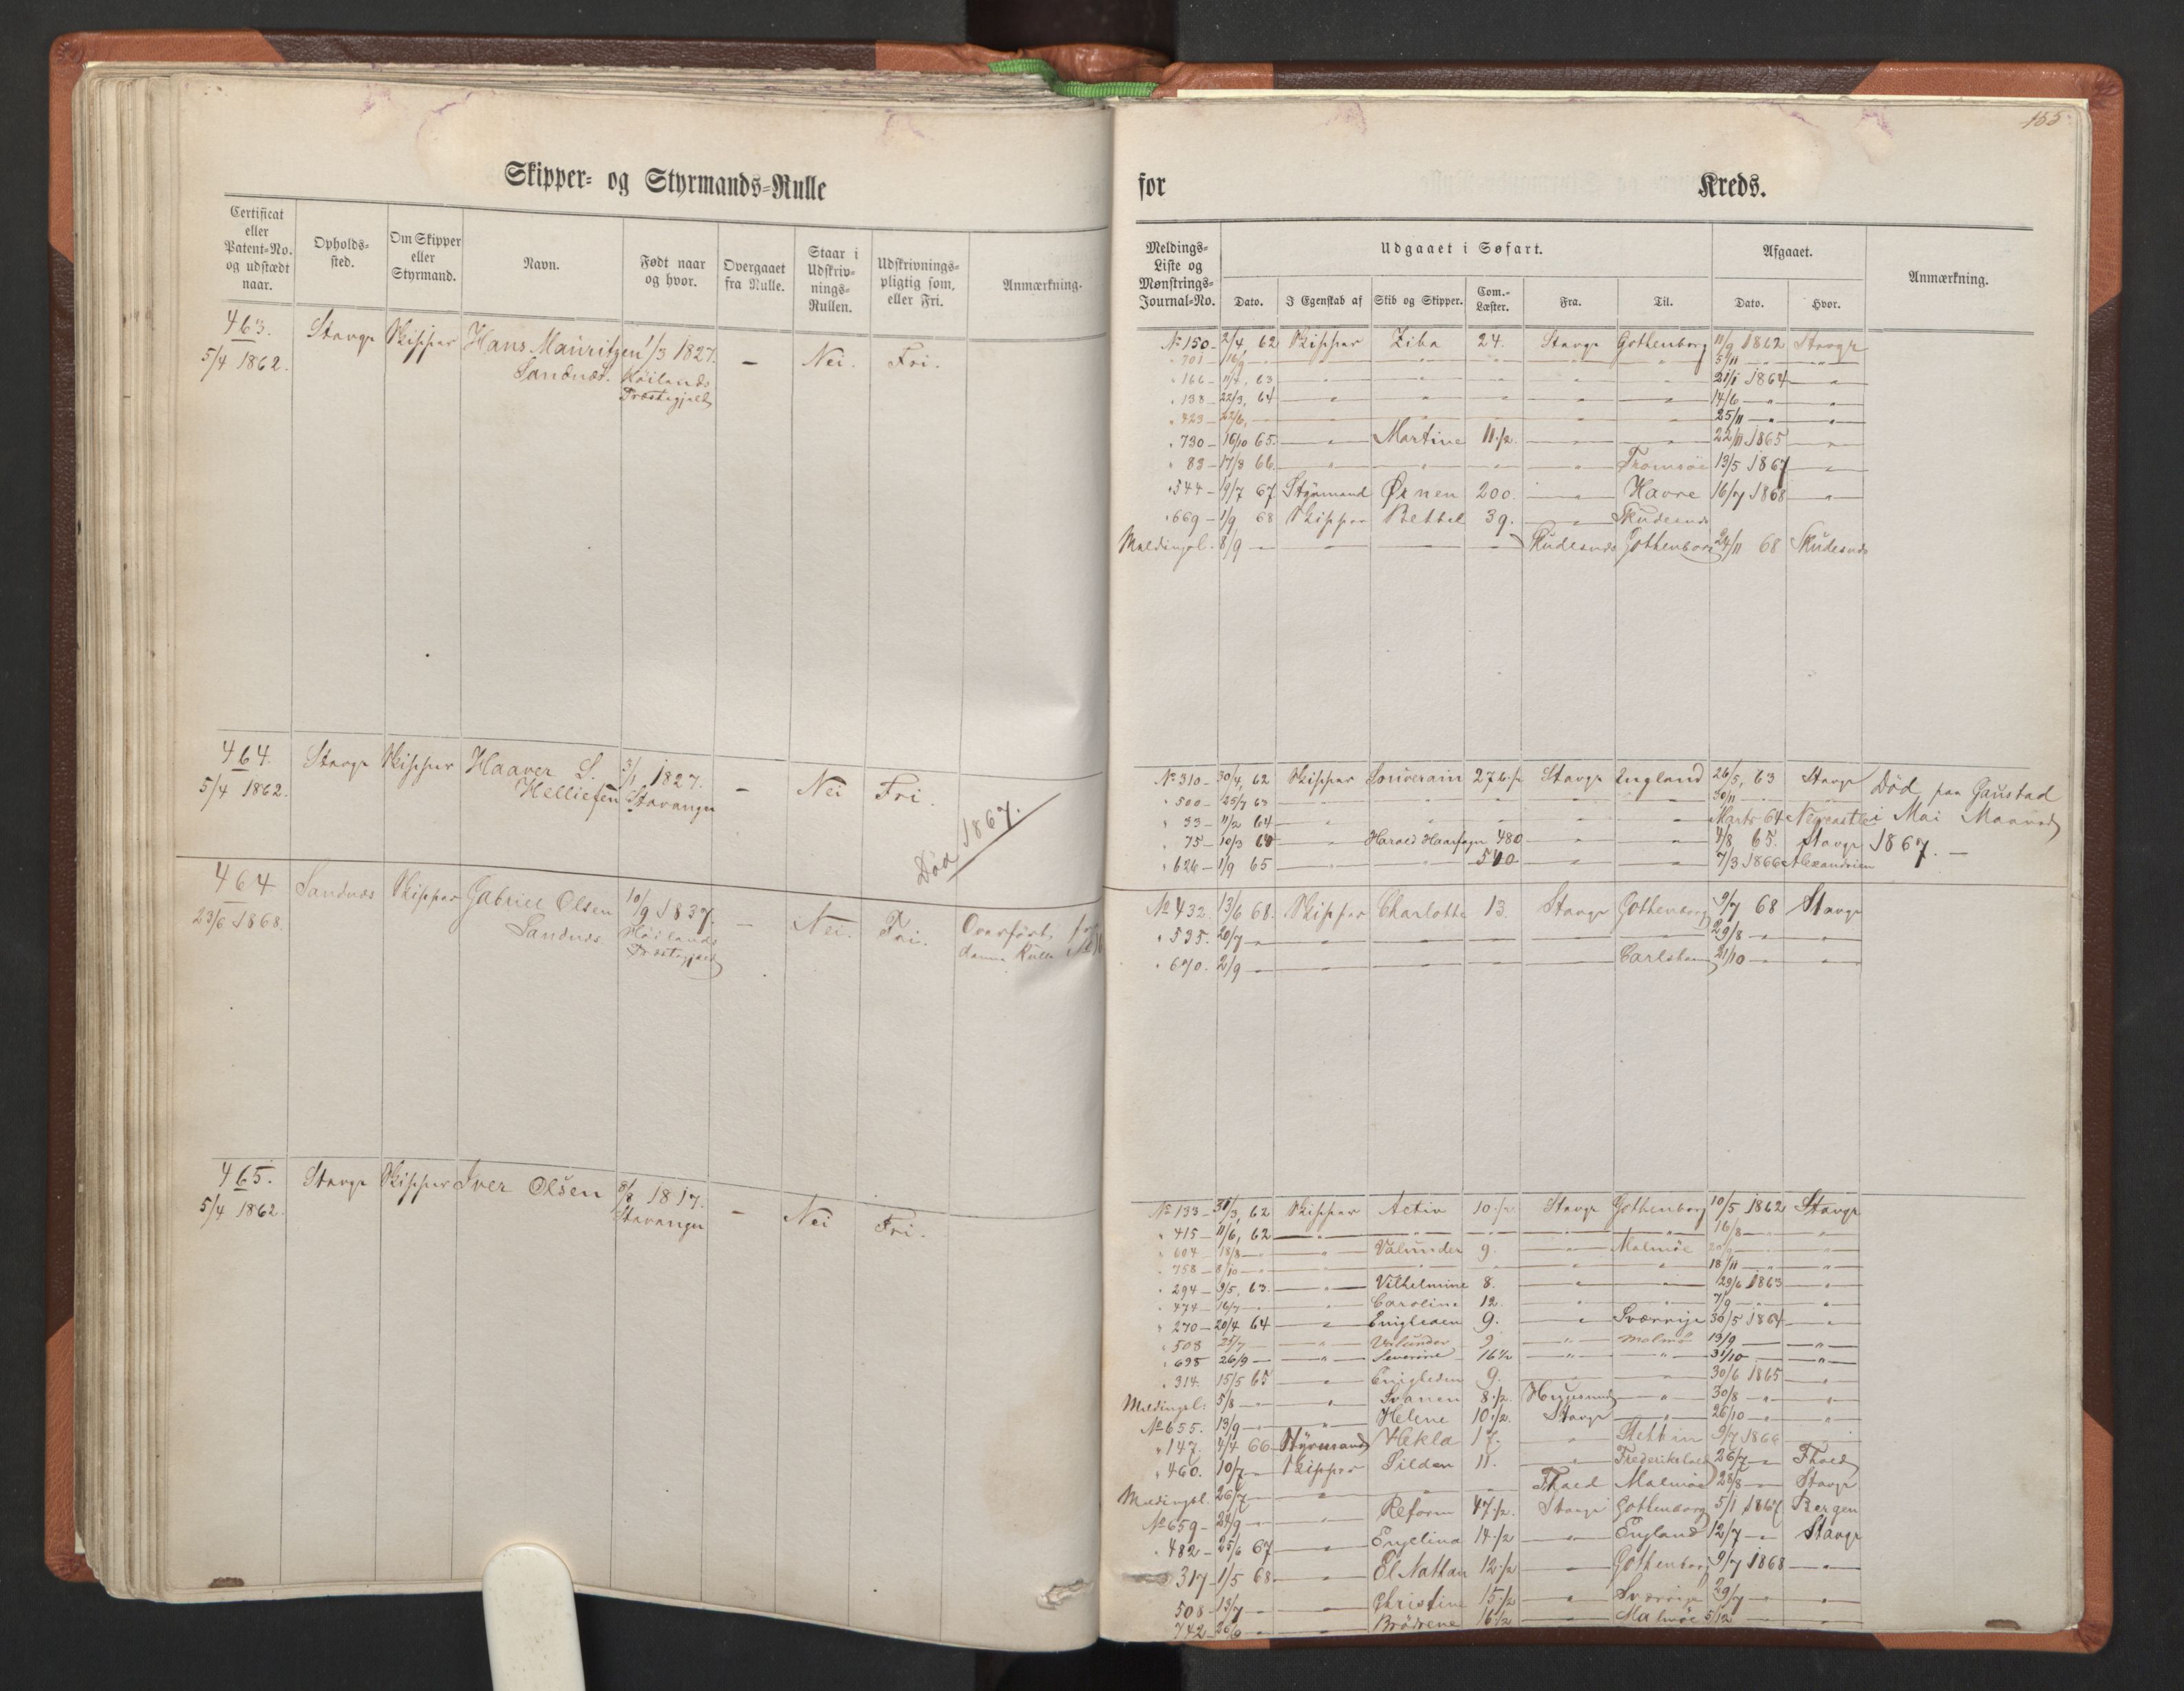 155
Skipper- og Styrmands-Rulle
for Kreds.
Certificat eller Patent-No. og udstædt naar. Opholds-sted. Om Skipper eller Styrmand. Navn. Født naar og hvor. Overgaaet fra Rulle. Staar i Udskriv-nings-Rullen. Udskrivnings-pligtig som, eller Fri. Anmærkning.
Meldings-Liste og Mønstrings-Journal-No. Udgaaet i Søfart. Afgaaet. Anmærkning.
Dato. I Egenskab af Skib og Skipper. Com.-Læster. Fra. Til. Dato. Hvor.
463. Stavgr Skipper Hans Mauritzen 1/3 1827. — Nei. Fri.
5/4 1862. Sandnæs. Höilands
Præstegjeld
No 150 - 2/4, 62 Skipper Ziba 24. Stavgr Gothenborg 11/9 1862 Stavgr
" 701 - 16/9 — " — " — " — " — " 5/11 — " — "
" 166 - 11/4, 63 — " — " — " — " — " 21/1 1864 — "
" 138 - 22/3, 64 — " — " — " — " — " 14/6 — " — "
" 423 - 22/6, — " — " — " — " — " 25/11 — " — "
" 730 - 16/10 65. — " Martine 11 1/2. — " — " 22/11 1865 — "
" 83 - 17/3 66. — " — " — " — " Tromsöe 13/5 1867 — "
" 544 - 19/7 67 Styrmand Ørnen 200. — " Havre 16/7 1868 — "
" 669 - 1/9 68 Skipper Bethel 39. — " Skudesnæs
Meldingsl. 8/9 — " — " — " — Skudesnæs Gothenborg 24/11 68 Skudesnæs
464. Stavgr Skipper Haaver S. 3/1 1827. — Nei Fri.
5/4 1862. Helliesen Stavanger
Död 1867.
No 310 - 30/4, 62 Skipper Souverain 276 1/2 Stavgr England 26/5, 63 Stavgr Död paa Gaustad
" 500 - 25/7 63 — " — " — " — " — " 30/11 — "
" 33 - 11/2 64 — " — " — " — " — " Marts 64 Newcastle i Mai Maaned
" 75 - 10/3 64 — " Harald Haarfagr 480 — " — " 4/8 65. Stavgr 1867. —
" 626 - 1/9 65 — " — " 540 — " — " 7/3 1866 Alexandrien
464 Sandnæs Skipper Gabriel Olsen 10/9 1837. — Nei. Fri. Overført fra
23/6 1868. Sandnæs. Höilands denne Rulle
Præstegjeld
No 432. 13/6 68. Skipper Charlotte 13. Stavgr Gothenborg 9/7 68 Stavgr
" 535. 20/7 — " — " — " — " — " 29/8 — " — "
" 670. 2/9 — " — " — " — " Carlshamn 21/10 — " — "
465. Stavgr Skipper Iver Olsen 8/8 1817. — Nei Fri.
5/4 1862. Stavanger
No 133 - 31/3, 62 Skipper Activ 10 1/2 Stavgr Gothenborg 10/5 1862 Stavgr
" 415 - 11/6, 62 — " — " — " — " — " 16/8 — " — "
" 604 - 18/8 — " — " Valunder 9. — " Malmöe — " — "
" 758 - 8/10 — " — " — " — " — " 18/11 — " — "
" 294 - 9/5, 63. — " Vilhelmine 8. — " — " 29/6 1863 — "
" 474 - 16/7 — " — " Caroline 12. — " — " 7/9 — " — "
" 270 - 20/4 64 — " Enigheden 9. — " Sverrige 30/5 1864 — "
" 508 25/7 — " Valunder 9 — " Malmö 13/9 — " — "
" 695 26/9 — " Severine 16 1/2 — " — " 31/10 — " — "
" 314. 15/5 65 — " Enigheden 9. — " — " 30/6 1865 — "
Meldingsl: 5/8 — " — " Svanen 8 1/2. — " 30/8 — " — "
No 655. 13/9 — " — " Helene 10 1/2. Stavgr — " 26/10 — " — "
" 147. 4/4 66 Styrmand Hekla 17. — " Stettin 9/7 1866 —
" 460. 10/7 — " Skipper Silden 11. — " Frederikshald 26/7 — " Fhald
Meldingsl. 26/7 — " — " — " Fhald Malmöe 28/8 — Stavgr
No 659 - 24/9 — " — " Reform 47 1/2. Stavgr Gothenborg 5/1 1867 Bergen
" 482 - 25/6 67 — " Engelina 14 1/2 — " England 12/7 — " Stavgr
317 - 1/5 68. — " El Nathan 12 1/2 — " Gothenborg 9/7 1868 — "
508 - 13/7 — " — " Christine 15 1/2 — " Sverrige 29/7 — " — "
742 - 26/9 — " — " Brödrene 16 1/2 — " Malmöe 5/12 — " — "